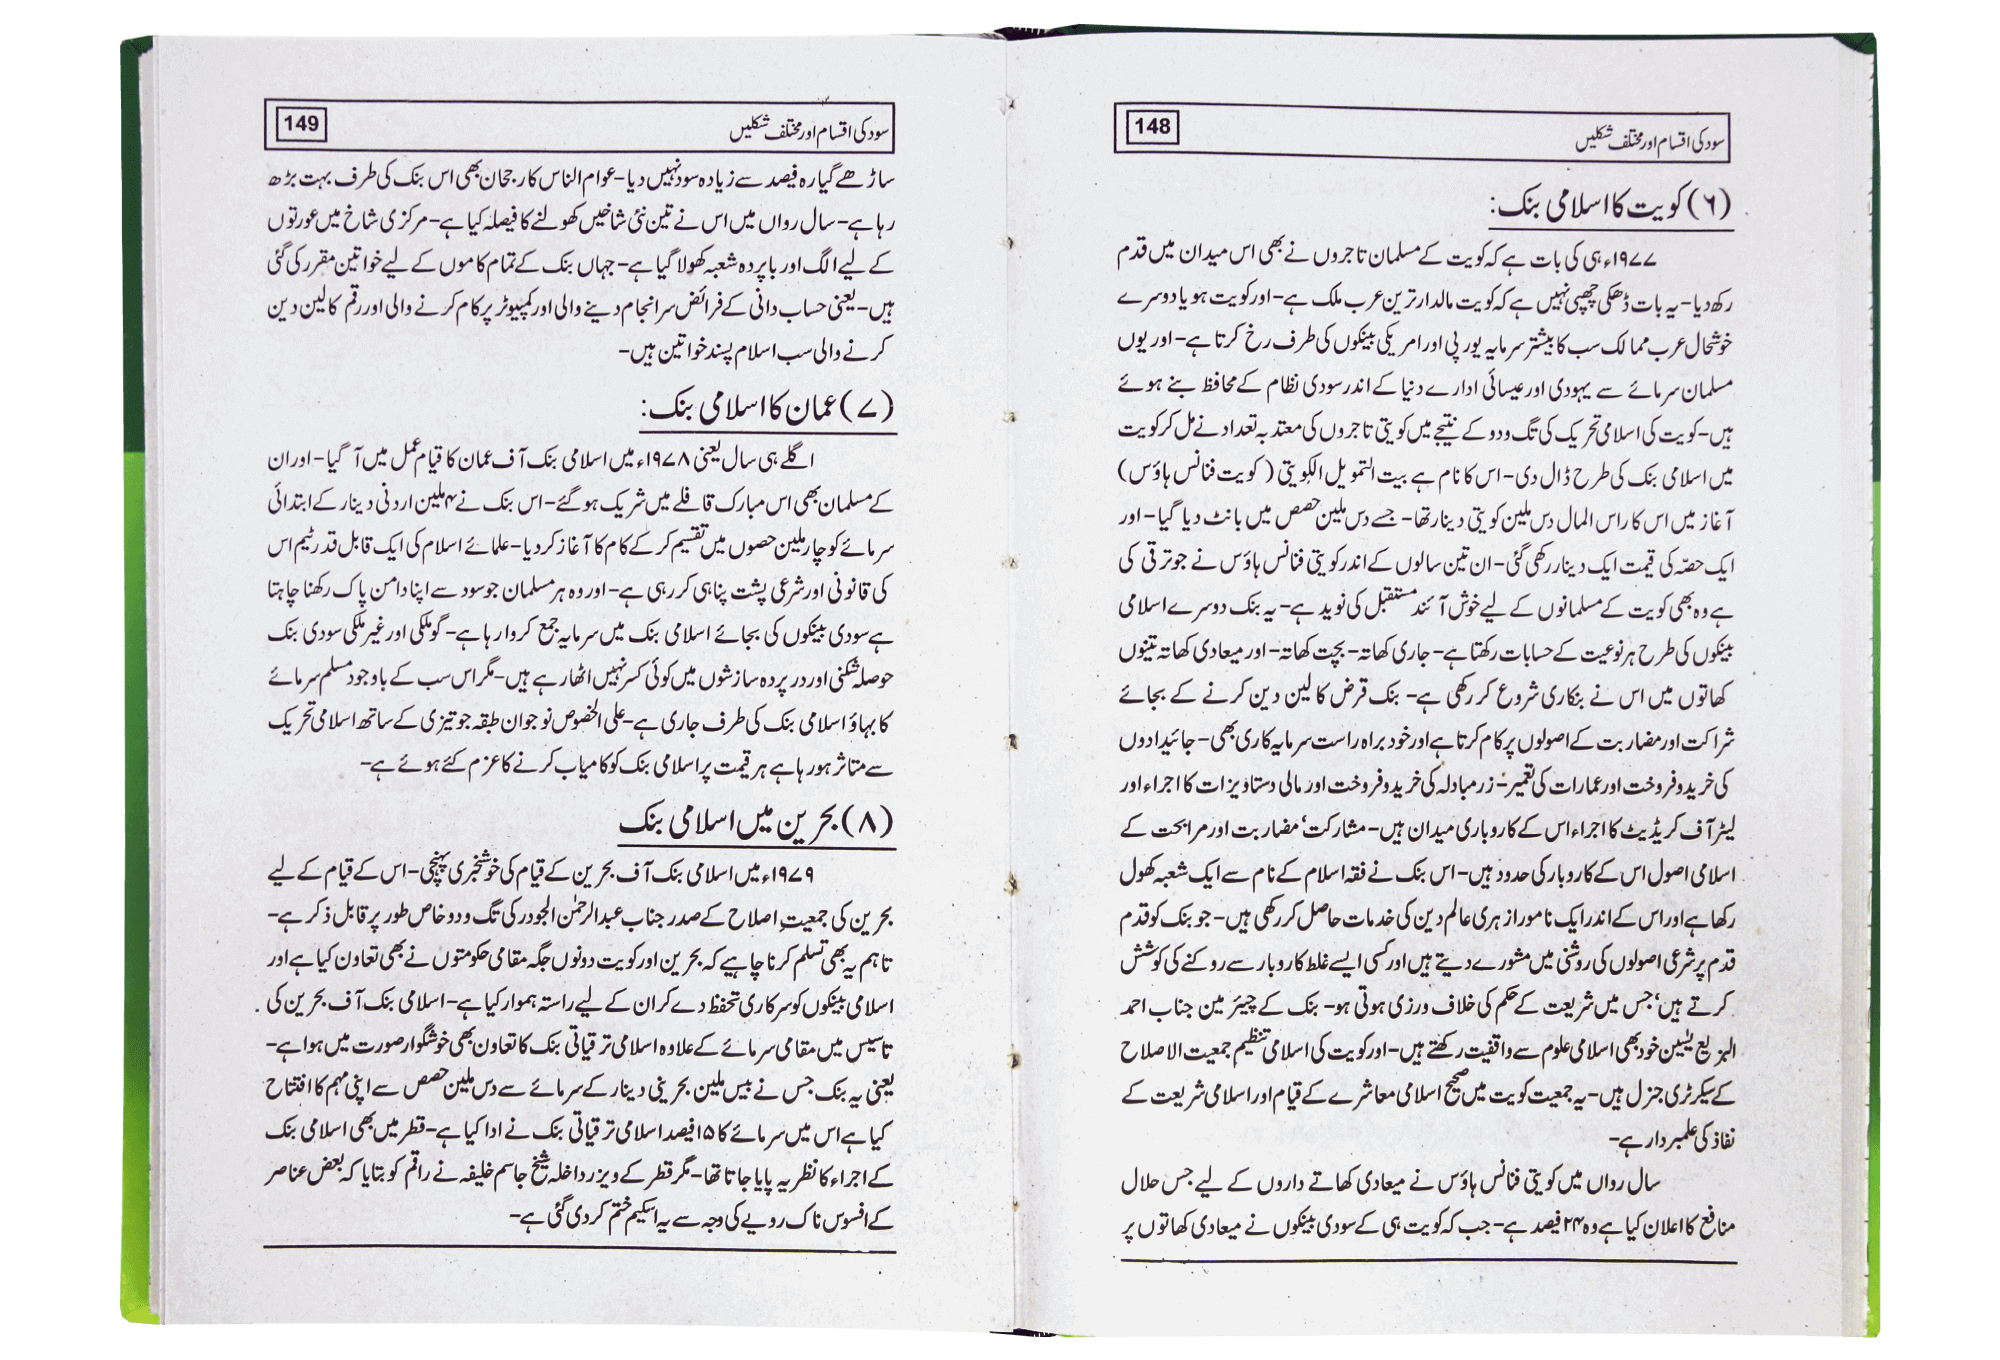 سود کی اقسام اور مختلف شکلیں 148
(۶) کویت کا اسلامی بنک:
۱۹۷۷ء ہی کی بات ہے کہ کویت کے مسلمان تاجروں نے بھی اس میدان میں قدم
رکھ دیا- یہ بات ڈھکی چھپی نہیں ہے کہ کویت مالدار ترین عرب ملک ہے- اور کویت ہو یا دوسرے
خوشحال عرب ممالک سب کا بیشتر سرمایہ یورپی اور امریکی بینکوں کی طرف رخ کرتا ہے- اور یوں
مسلمان سرمائے سے یہودی اور عیسائی ادارے دنیا کے اندر سودی نظام کے محافظ بنے ہوئے
ہیں- کویت کی اسلامی تحریک کی تگ و دو کے نتیجے میں کویتی تاجروں کی معتد بہ تعداد نے مل کر کویت
میں اسلامی بنک کی طرح ڈال دی- اس کا نام ہے بیت التمویل الکویتی (کویت فنانس ہاؤس)
آغاز میں اس کا راس المال دس ملین کویتی دینار تھا- جسے دس ملین حصص میں بانٹ دیا گیا- اور
ایک حصّہ کی قیمت ایک دینار رکھی گئی- ان تین سالوں کے اندر کویتی فنانس ہاؤس نے جو ترقی کی
ہے وہ بھی کویت کے مسلمانوں کے لیے خوش آئند مستقبل کی نوید ہے- یہ بنک دوسرے اسلامی
بینکوں کی طرح ہر نوعیت کے حسابات رکھتا ہے- جاری کھاتہ- بچت کھاتہ- اور میعادی کھاتہ تینوں
کھاتوں میں اس نے بنکاری شروع کر رکھی ہے- بنک قرض کا لین دین کرنے کے بجائے
شراکت اور مضاربت کے اصولوں پر کام کرتا ہے اور خود براہ راست سرمایہ کاری بھی- جائیدادوں
کی خرید و فروخت اور عمارات کی تعمیر- زر مبادلہ کی خرید و فروخت اور مالی دستاویزات کا اجراء اور
لیٹر آف کریڈیٹ کا اجراء اس کے کاروباری میدان ہیں- مشارکت‘ مضاربت اور مرابحت کے
اسلامی اصول اس کے کاروبار کی حدود ہیں- اس بنک نے فقہ اسلام کے نام سے ایک شعبہ کھول
رکھا ہے اور اس کے اندر ایک نامور ازہری عالم دین کی خدمات حاصل کر رکھی ہیں- جو بنک کو قدم
قدم پر شرعی اصولوں کی روشنی میں مشورے دیتے ہیں اور کسی ایسے غلط کاروبار سے روکنے کی کوشش
کرتے ہیں‘ جس میں شریعت کے حکم کی خلاف ورزی ہوتی ہو- بنک کے چیئرمین جناب احمد
البزیع یٰسین خود بھی اسلامی علوم سے واقفیت رکھتے ہیں- اور کویت کی اسلامی تنظیم جمعیت الاصلاح
کے سیکرٹری جنرل ہیں- یہ جمعیت کویت میں صحیح اسلامی معاشرے کے قیام اور اسلامی شریعت کے
نفاذ کی علمبردار ہے-
سال رواں میں کویتی فنانس ہاؤس نے میعادی کھاتے داروں کے لیے جس حلال
منافع کا اعلان کیا ہے وہ ۲۴ فیصد ہے- جب کہ کویت ہی کے سودی بینکوں نے میعادی کھاتوں پر
سود کی اقسام اور مختلف شکلیں 149
ساڑھے گیارہ فیصد سے زیادہ سود نہیں دیا- عوام الناس کا رجحان بھی اس بنک کی طرف بہت بڑھ
رہا ہے- سال رواں میں اس نے تین نئی شاخیں کھولنے کا فیصلہ کیا ہے- مرکزی شاخ میں عورتوں
کے لیے الگ اور باپردہ شعبہ کھولا گیا ہے- جہاں بنک کے تمام کاموں کے لیے خواتین مقرر کی گئی
ہیں- یعنی حساب دانی کے فرائض سرانجام دینے والی اور کمپیوٹر پر کام کرنے والی اور رقم کا لین دین
کرنے والی سب اسلام پسند خواتین ہیں-
(۷) عمان کا اسلامی بنک:
اگلے ہی سال یعنی ۱۹۷۸ء میں اسلامی بنک آف عمان کا قیام عمل میں آ گیا- اور ان
کے مسلمان بھی اس مبارک قافلے میں شریک ہو گئے- اس بنک نے ۴ ملین اردنی دینار کے ابتدائی
سرمائے کو چار ملین حصوں میں تقسیم کر کے کام کا آغاز کر دیا- علمائے اسلام کی ایک قابل قدر ٹیم اس
کی قانونی اور شرعی پشت پناہی کر رہی ہے- اور وہ ہر مسلمان جو سود سے اپنا دامن پاک رکھنا چاہتا
ہے سودی بینکوں کی بجائے اسلامی بنک میں سرمایہ جمع کروا رہا ہے- گو ملکی اور غیر ملکی سودی بنک
حوصلہ شکنی اور در پردہ سازشوں میں کوئی کسر نہیں اٹھا رہے ہیں- مگر اس سب کے باوجود مسلم سرمائے
کا بہاؤ اسلامی بنک کی طرف جاری ہے- علی الخصوص نوجوان طبقہ جو تیزی کے ساتھ اسلامی تحریک
سے متاثر ہو رہا ہے ہر قیمت پر اسلامی بنک کو کامیاب کرنے کا عزم کئے ہوئے ہے-
(۸) بحرین میں اسلامی بنک
۱۹۷۹ء میں اسلامی بنک آف بحرین کے قیام کی خوشخبری پہنچی- اس کے قیام کے لیے
بحرین کی جمعیتِ اصلاح کے صدر جناب عبدالرحمٰن الجودر کی تگ و دو خاص طور پر قابل ذکر ہے-
تاہم یہ بھی تسلم کرنا چاہیے کہ بحرین اور کویت دونوں جگہ مقامی حکومتوں نے بھی تعاون کیا ہے اور
اسلامی بینکوں کو سرکاری تحفظ دے کر ان کے لیے راستہ ہموار کیا ہے- اسلامی بنک آف بحرین کی
تاسیس میں مقامی سرمائے کے علاوہ اسلامی ترقیاتی بنک کا تعاون بھی خوشگوار صورت میں ہوا ہے-
یعنی یہ بنک جس نے بیس ملین بحرینی دینار کے سرمائے سے دس ملین حصص سے اپنی مہم کا افتتاح
کیا ہے اس میں سرمائے کا ۱۵ فیصد اسلامی ترقیاتی بنک نے ادا کیا ہے- قطر میں بھی اسلامی بنک
کے اجراء کا نظریہ پایا جاتا تھا- مگر قطر کے ویزر داخلہ شیخ جاسم خلیفہ نے راقم کو بتایا کہ بعض عناصر
کے افسوس ناک رویے کی وجہ سے یہ اسکیم ختم کر دی گئی ہے-